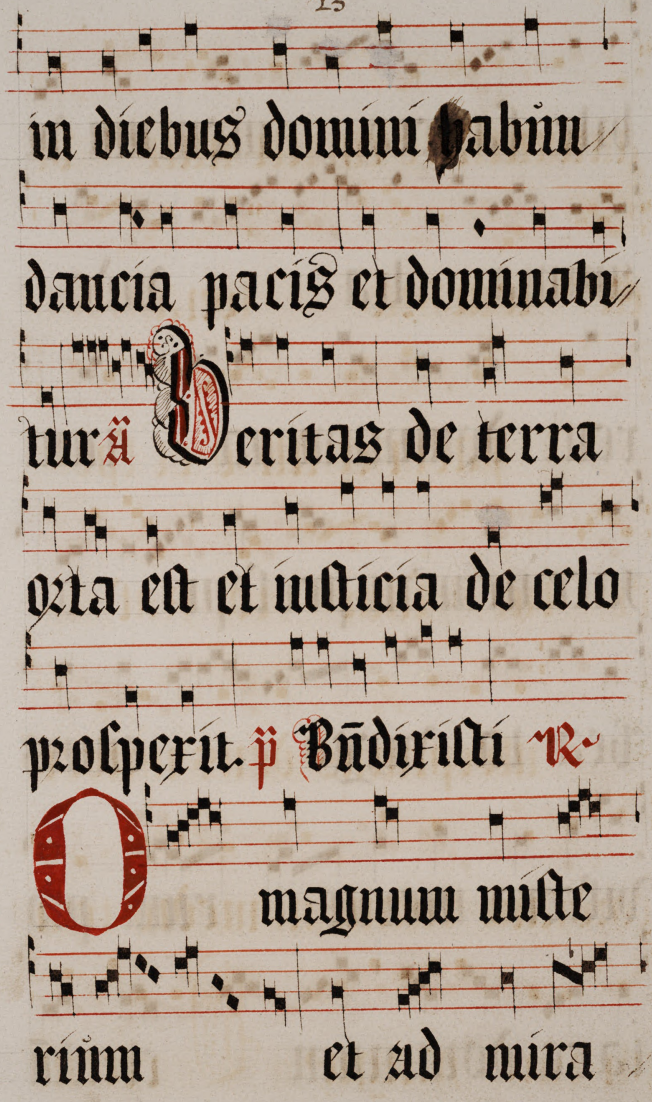 in diebus domini habun
dancia pacis et dominabi
tur a̅ Veritas de terra
orta est et iusticia de celo
prospexit. p̄ Bn̄dixisti R
O magnum miste
rium et ad mira